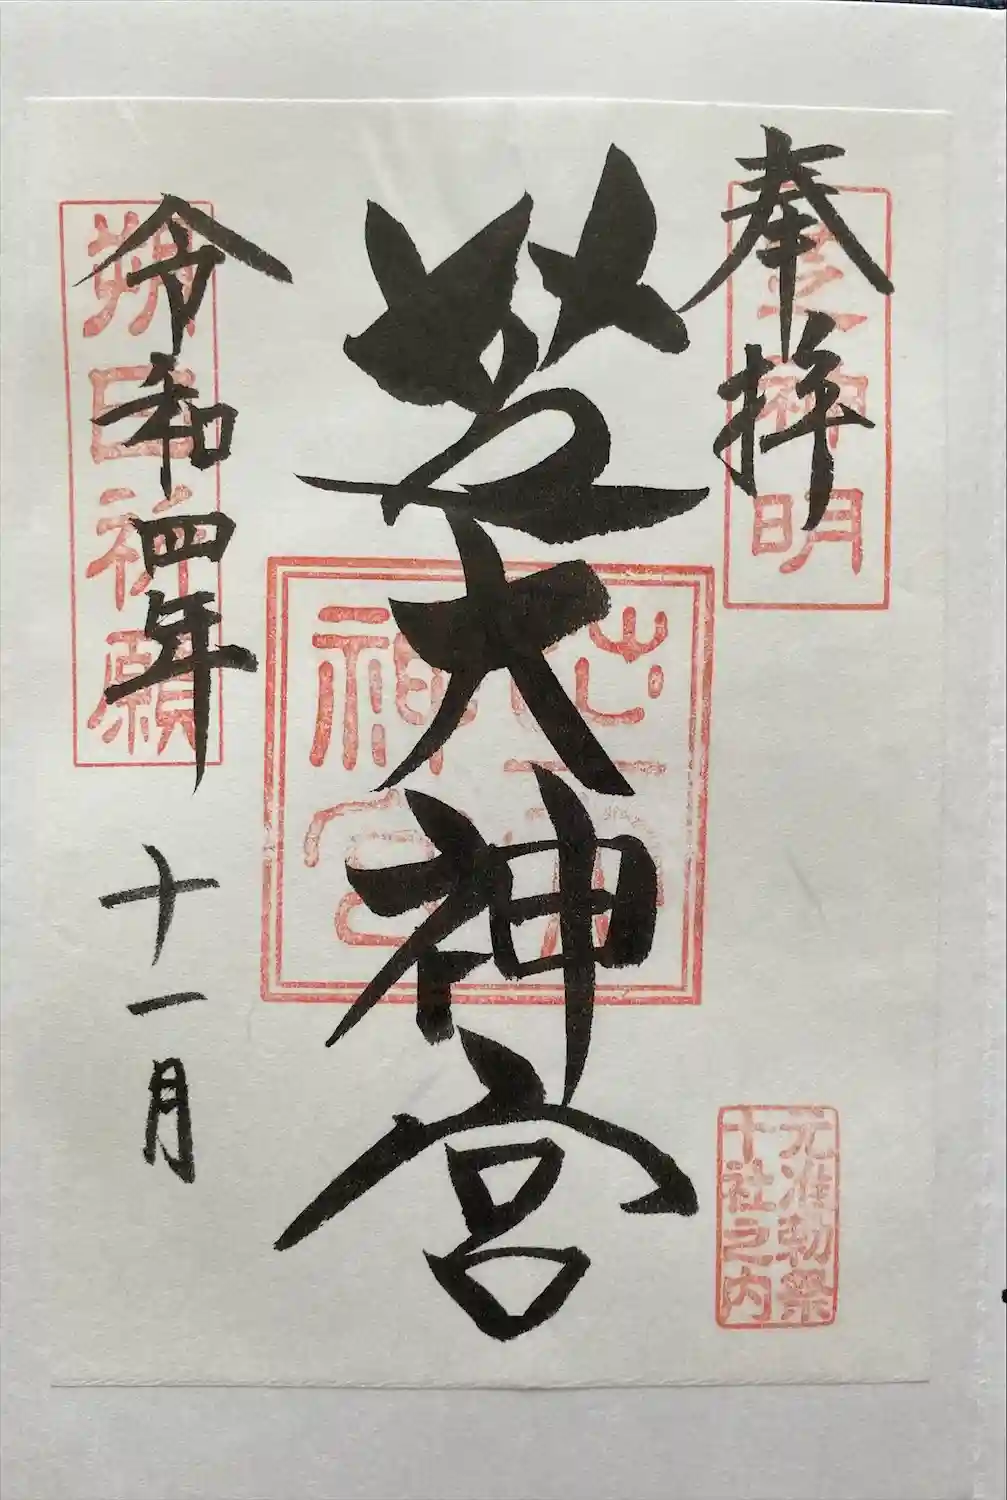 奉拝
芝神明
芝大神宮
芝大神宮
元准勅祭
十社之内
令和四年十一月
朔日祈願